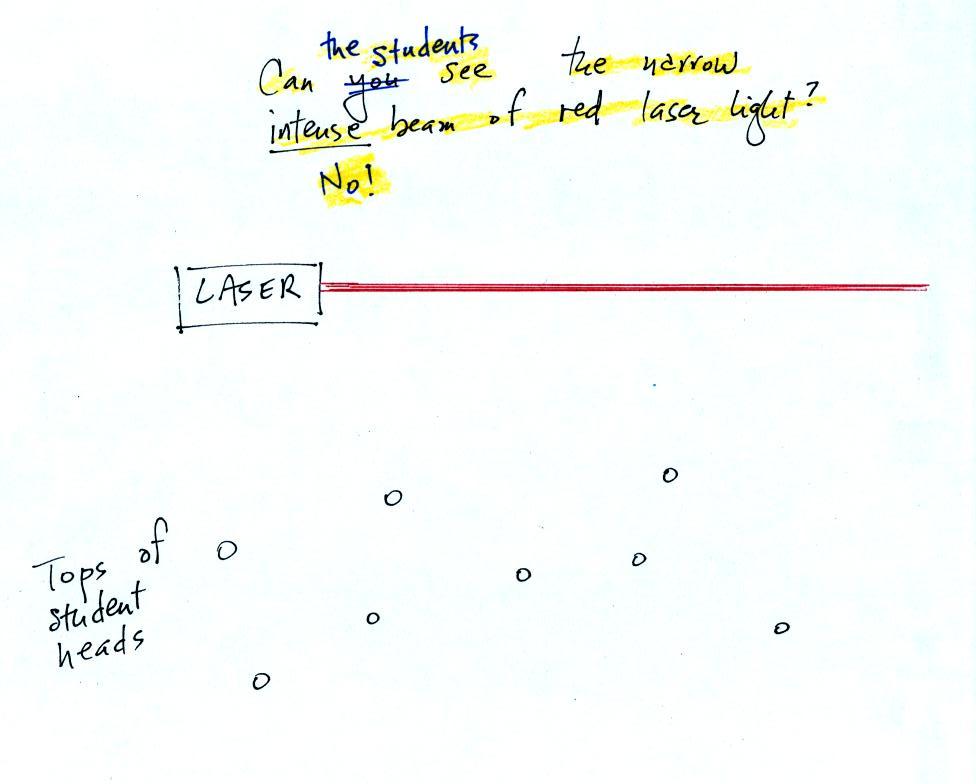 the students
Can you see the narrow
intense beam of red laser light?
No!
LASER
Tops of
student
heads